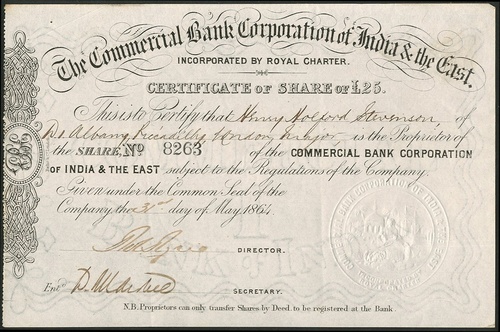 The Commercial Bank Corporation of India & the East.
INCORPORATED BY ROYAL CHARTER.
CERTIFICATE OF SHARE OF £25.
This is to Certify that Henry Holford Stevenson, of
Albany, Piccadilly, London, Major, is the Proprietor of
the SHARE, No 8263 of the COMMERCIAL BANK CORPORATION
OF INDIA & THE EAST subject to the Regulations of the Company.
Given under the Common Seal of the
Company, the 31st day of May 1864
DIRECTOR.
Entd
SECRETARY.
N.B. Proprietors can only transfer Shares by Deed to be registered at the Bank.